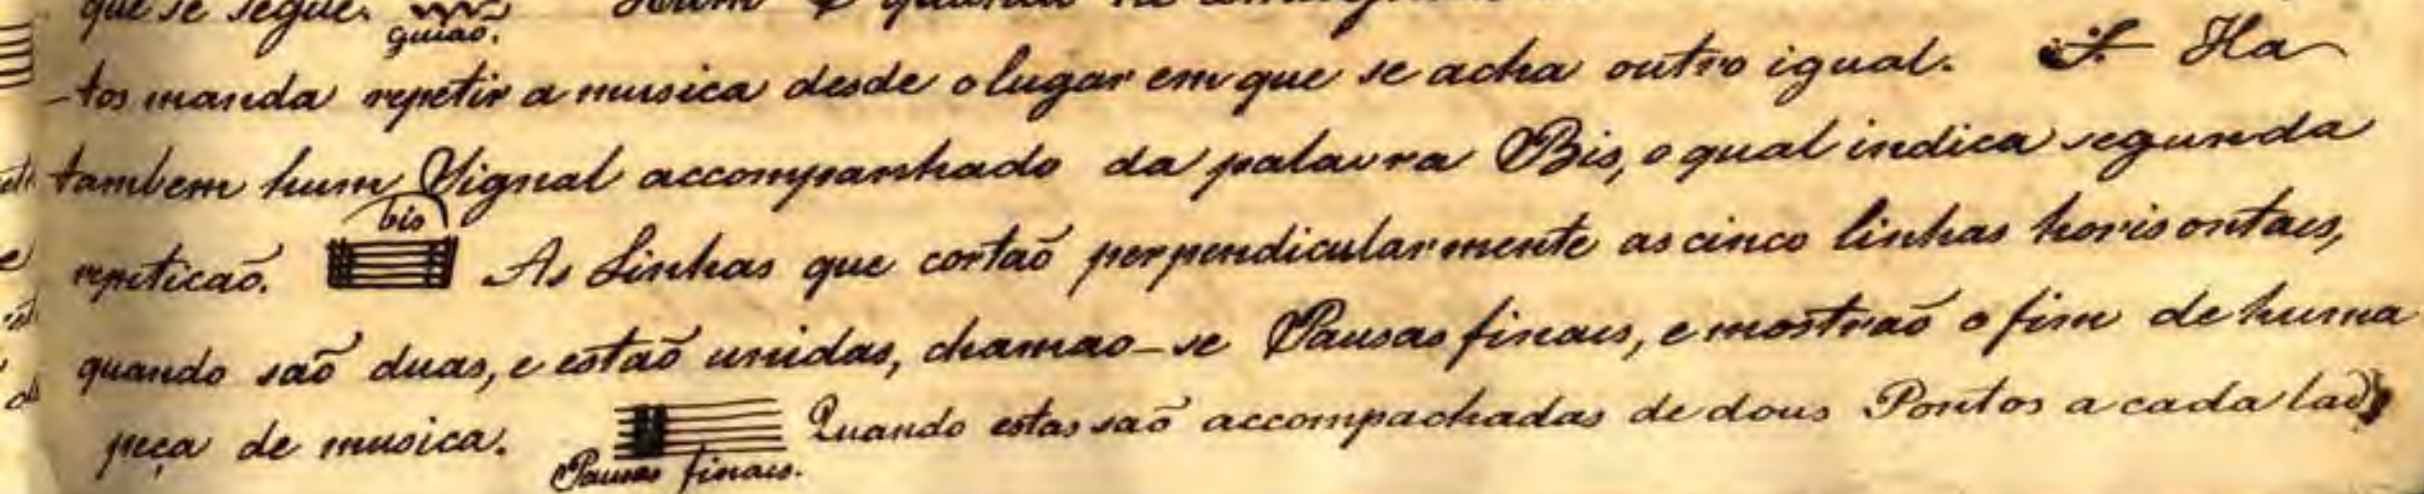 que se segue.
guiaõ.
-tos manda repetir a musica desde o lugar em que se acha outro igual. Ha
tambem hum Signal accompanhado da palavra Bis, o qual indica segunda
bis
repeticaõ. As Linhas que cortaõ perpendicularmente as cinco linhas horisontaes,
quando saõ duas, e estaõ unidas, chamao-se Pausas finaes, e mostraõ o fim de huma
peça de musica. Quando estas saõ accompachadas de dous Pontos a cada lado
Pausas finaes.